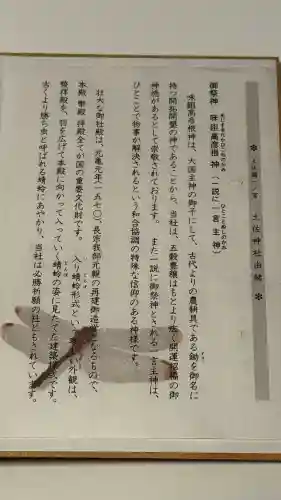 土佐神社由緒
御祭神 味鋤高彦根神（一説に一言主神）
味鋤高彦根神は、大国主神の御子にして、古代よりの農耕具である鋤を御名に
持つ開拓開墾の神であることから、当社は、五穀豊穣はもとより広く開運招福の御
神徳があるとして崇敬されております。また一説に御祭神とされる一言主神は、
ひとことで物事が解決されるという和合協調の特殊な信仰のある神様です。
壮大な御社殿は、元亀元年（一五七〇）、長宗我部元親の再建御造営になるもので、
本殿 幣殿 拝殿全てが国の重要文化財です。入り蜻蛉形式といわれる外観は、
幣拝殿を、羽を広げて本殿に向かって入っていく蜻蛉の姿に見たてた建築様式です。
古くより勝ち虫と呼ばれる蜻蛉にあやかり、当社は必勝祈願の社ともされています。